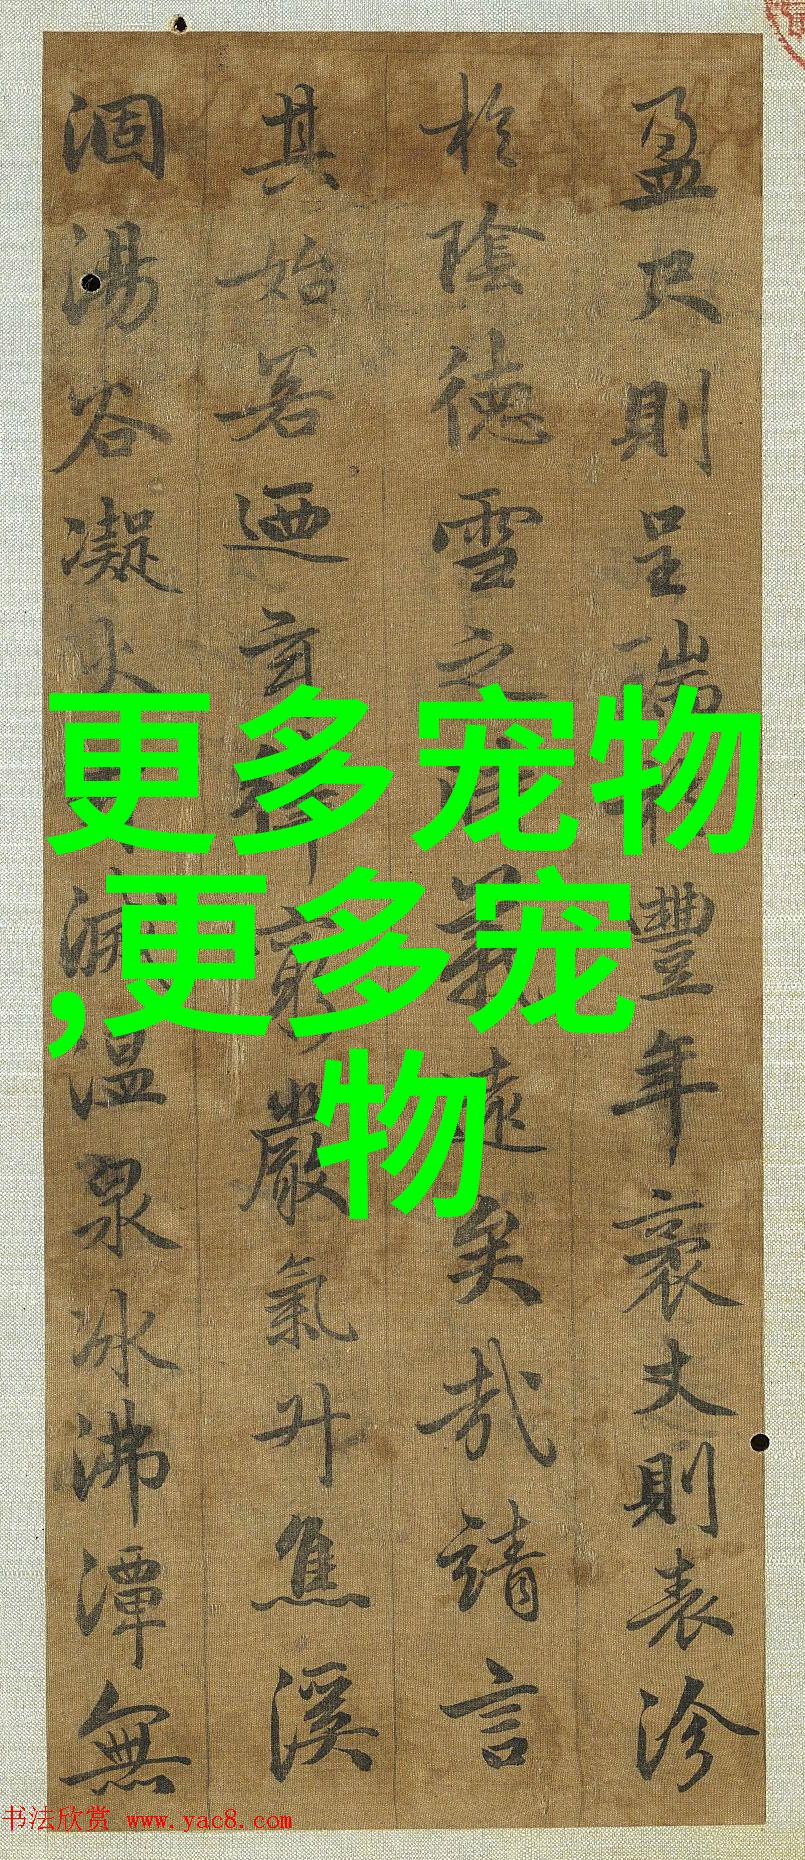 盈尺則呈瑞豐年袤丈則表沴
於陰德雪之義遠矣哉請言
其始若迺玄律窮嚴氣升焦溪
涸湯谷凝火滅溫泉冰沸潭無
更多宠物
,更多宠
物
书法欣赏 www.yac8.com